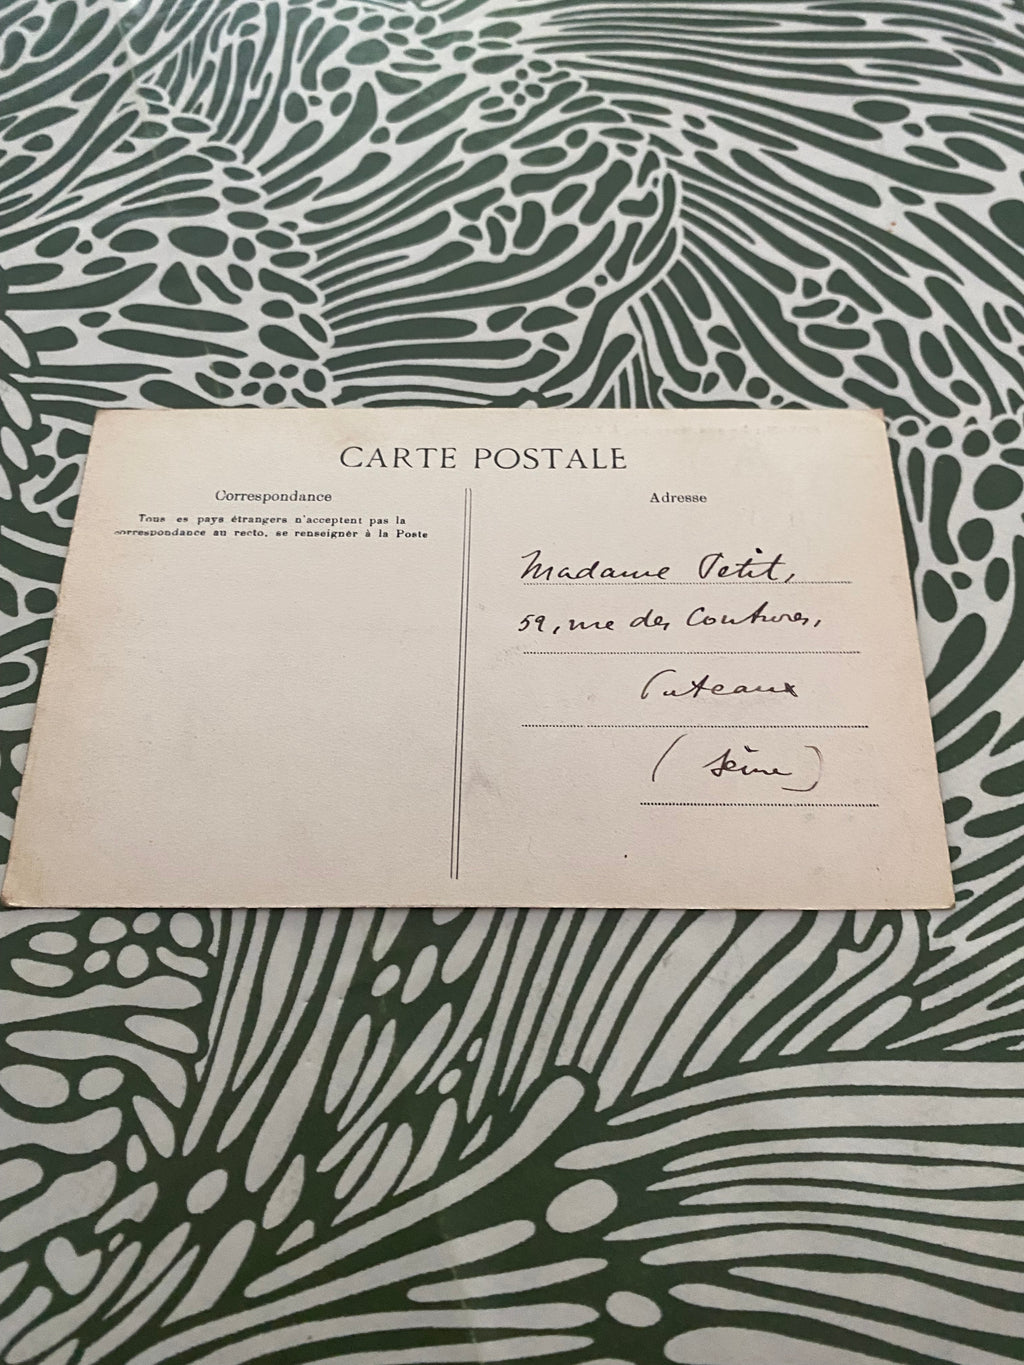 CARTE POSTALE
Correspondance
Tous es pays étrangers n'acceptent pas la
correspondance au recto, se renseigner à la Poste
Adresse
Madame Petit,
59, rue des Coutures,
Puteaux
(Seine)